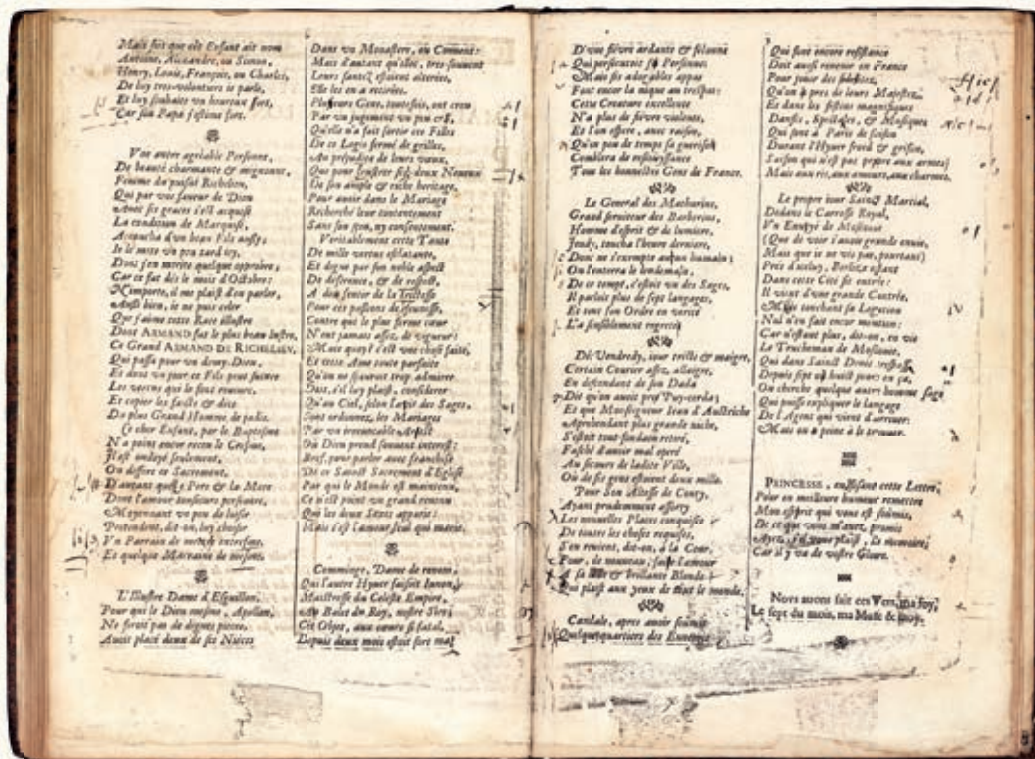 Mais soit que cét Enfant ait nom
Antoine, Alexandre, ou Simon,
Henry, Louis, François, ou Charles,
De luy tres-volontiers ie parle,
Et luy souhaite vn heureux sort,
Car son Papa j'estime fort.
Vne autre agréable Personne,
De beauté charmante & mignonne,
Femme du puisné Richelieu,
Qui par vne faueur de Dieu
Auec ses graces s'est acquise
La condition de Marquise,
Accoucha d'vn beau Fils aussy;
Ie le mets vn peu tard icy,
Dont j'en mérite quelque oprobre;
Car ce fut dés le mois d'Octobre:
N'importe, il me plaist d'en parler,
Aussi bien, ie ne puis celer
Que j'aime cette Race illustre
Dont ARMAND fut le plus beau lustre,
Ce Grand ARMAND DE RICHELIEV,
Qui passa pour vn demy-Dieu,
Et dont vn jour ce Fils peut suiure
Les vertus qui le font reuiure,
Et copier les faicts & dits
Du plus Grand Homme de jadis.
Ce cher Enfant, par le Baptesme
N'a point encor receu le Cresme,
Il est ondoyé seulement,
On difere ce Sacrement,
D'autant que le Pere & la Mere
Dont l'amour tousiours perseuere,
Moyennant vn peu de loisir
Pretendent, dit-on, luy choisir
Vn Parrain de
Et quelque Marraine de
L'Illustre Dame d'Esguillon,
Pour qui le Dieu mesme, Apollon,
Ne seroit pas de digne
Auoit placé deux de ses Niéces
Dans vn Monastere, ou Conuent:
Mais d'autant qu'illec, tres-souuent
Leurs santez estoient alterées,
Elle les en a retirées.
Plusieurs Gens, toutesfois, ont creu
Par vn jugement vn peu
Qu'elle n'a fait sortir ces Filles
De ce Logis fermé de grilles,
Au préjudice de leurs voeux,
Que pour frustrer ses deux Neueux
De son ample & riche heritage,
Pour auoir dans le Mariage
Recherché leur contentement
Sans son sceu, ny consentement.
Veritablement cette Tante
De mille vertus esclatante,
Et digne par son noble aspect
De deference, & de respect,
A deu sentir de la Tristesse
Pour ces passions de jeunesse,
Contre qui le plus ferme coeur
N'ont jamais assez de vigueur:
Mais quoy? c'est vne chose faite,
Et cette Ame toute parfaite
Qu'on ne sçauroit trop admirer
Doit, s'il luy plaist, considerer
Qu'au Ciel, selon l'avis des Sages,
Sont ordonnez les Mariages
Par vn irreuocable Arrest
Où Dieu prend souuent interest:
Bref, pour parler auec franchise
De ce Sainct Sacrement d'Eglise
Par qui le Monde est maintenu,
Ce n'est point vn grand reuenu
Qui les deux Sexes apparie:
Mais c'est l'amour seul qui marie.
Comminge, Dame de renom,
Qui l'autre Hyuer faisoit Iunon,
Maistresse du Celeste Empire,
Au Balet du Roy, nostre Sire;
Cét Objet, aux coeurs si fatal,
Depuis deux mois estoit fort mal
D'vne fiévre ardante & félonne
Qui persecutoit sa Personne:
Mais ses adorables appas
Font encor la nique au trespas:
Cette Creature excellente
N'a plus de fiévre violente,
Et l'on espere, auec raison,
Qu'en peu de temps sa guerison
Comblera de resiouyssance
Tous les honnestes Gens de France.
Le General des Mathurins,
Grand seruiteur des Barberins,
Homme d'esprit & de lumiere,
Jeudy, toucha l'heure derniere,
Dont ne s'exempte aucun humain;
On l'enterra le lendemain,
De ce temps, c'estoit vn des Sages,
Il parloit plus de sept langages,
Et tout son Ordre en verité
L'a sensiblement regretté
Dés Vendredy, iour triste & maigre,
Certain Courier assez allaigre,
En descendant de son Dada
Dit qu'on auoit pris Puy-cerda;
Et que Monseigneur Iean d'Austriche
Aprehendant plus grande niche,
S'estoit tout-soudain retiré,
Fasché d'auoir mal operé
Au secours de ladite Ville,
Où de ses gens estoient deux mille.
Pour Son Altesse de Conty,
Ayant prudemment assorty
Les nouuelles Places conquises
De toutes les choses requises,
S'en reuient, dit-on, à la Cour,
Pour, de nouueau, faire l'amour
A sa & brillante Blonde
Qui plaist aux yeux de tout le monde.
Candale, apres auoir soûmis
Quelques quartiers des Ennemis
Qui font encore resistance
Doit aussi reuenir en France
Pour jouer des
Qu'on a pres de leurs Majestez,
Et dans les festins magnifiques
Danses, Spectacles, & Musiques
Qui sont à Paris de saison
Durant l'Hyuer froid & grison,
Saison qui n'est pas propre aux armes;
Mais aux ris, aux amours, aux charmes.
Le propre iour Sainct Martial,
Dedans le Carrosse Royal,
Vn Enuoyé de Moscouie
(Que de voir i'auois grande enuie,
Mais que ie ne vis pas, pourtant)
Prés d'iceluy, Berlize estant
Dans cette Cité fit entrée:
Il vient d'vne grande Contrée,
Mais touchant sa Legation
Nul n'en fait encor mention:
Car n'estant plus, dit-on, en vie
Le Trucheman de Moscouie,
Qui dans Sainct Denis trespassa,
Depuis sept ou huict jours en ça,
On cherche quelque autre homme sage
Qui puisse expliquer le langage
De l'Agent qui vient d'arriuer:
Mais on a peine à le trouuer.
PRINCESSE, en lisant cette Lettre,
Pour en meilleure humeur remettre
Mon esprit qui vous est soûmis,
De ce que vous m'auez promis
Ayez, s'il vous plaist, la memoire;
Car il y va de vostre Gloire.
Nous auons fait ces Vers, ma foy,
Le sept du mois, ma Muse & moy.